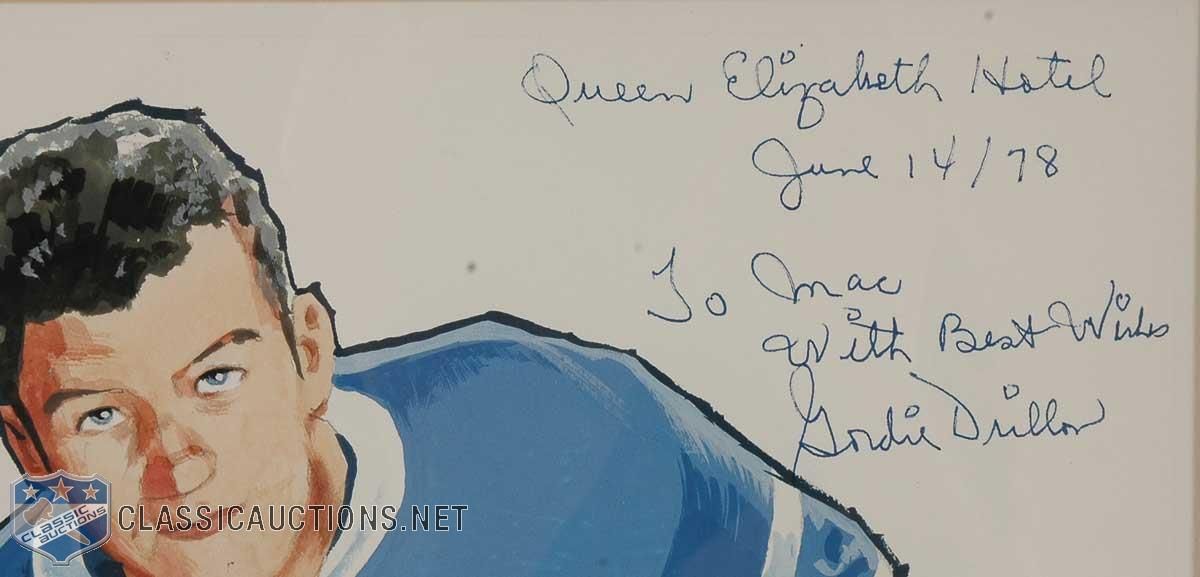 Queen Elizabeth Hotel
June 14/78
To Mac
With Best Wishes
Gordie Drillon
CLASSIC
AUCTIONS
CLASSICAUCTIONS.NET